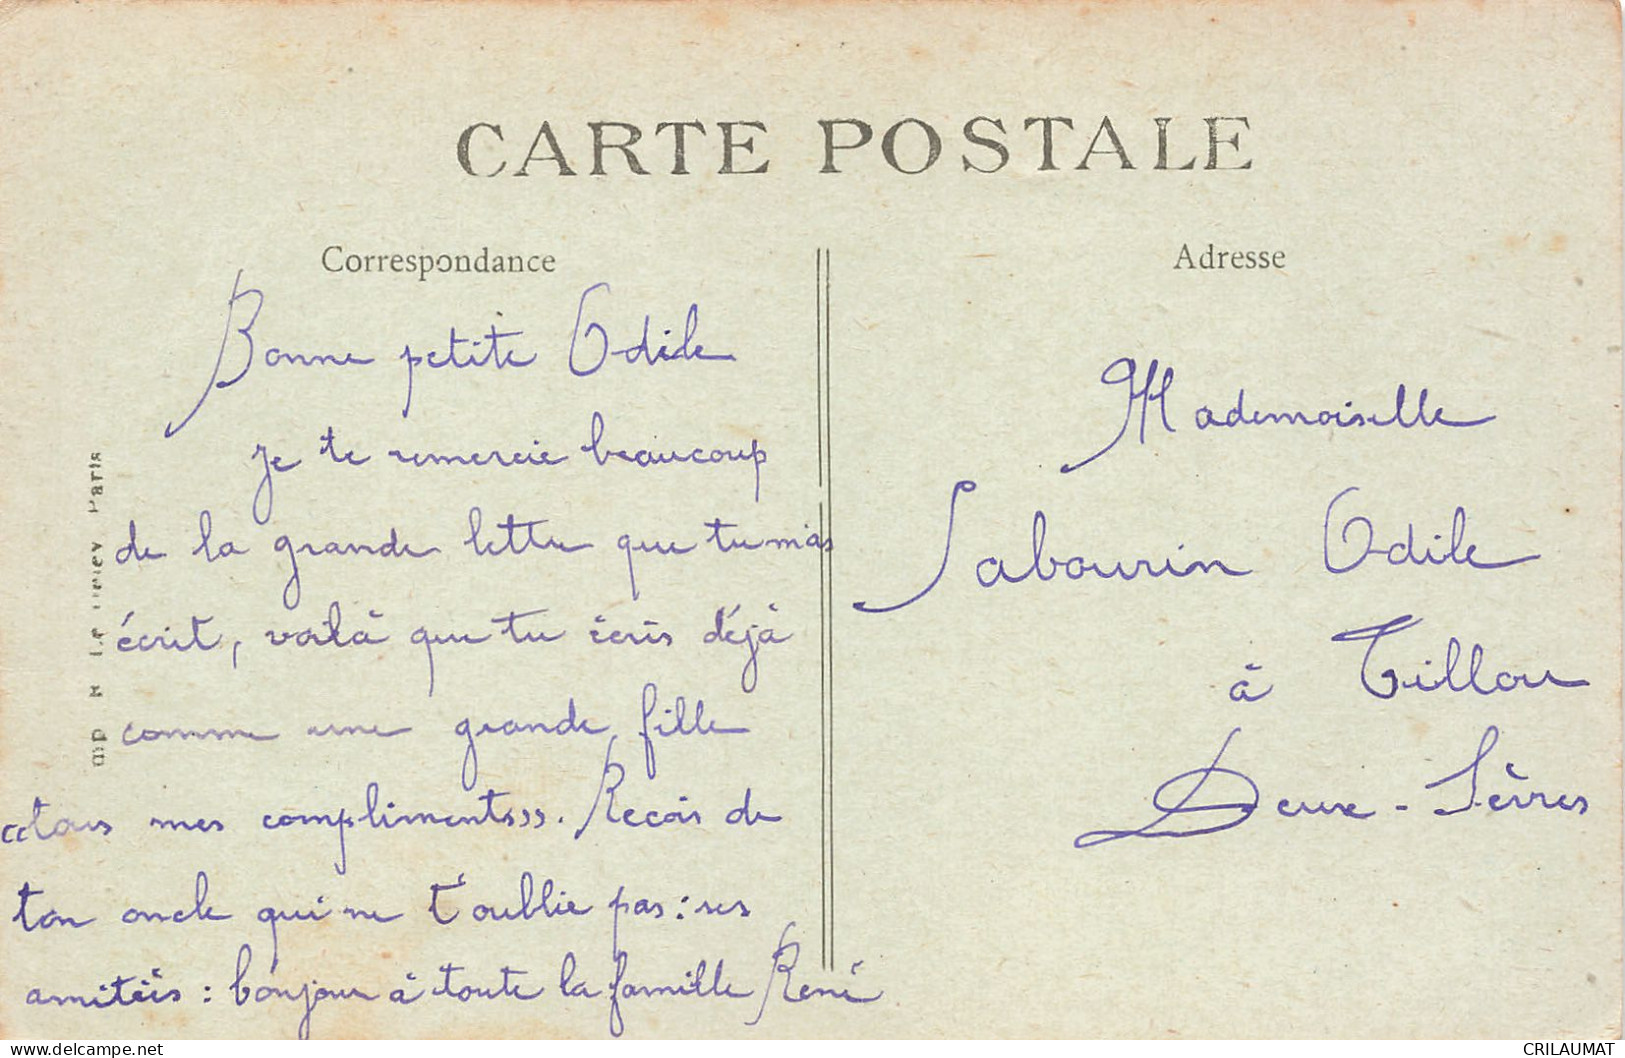 CARTE POSTALE
Correspondance
Bonne petite Odile
je te remercie beaucoup
de la grande lettre que tu mas
écrit, voilà que tu écris déjà
comme une grande fille
mes compliments. Recois de
ton oncle qui ne t'oublie pas : ses
amitiés : bonjour à toute la famille René
Adresse
Mademoiselle
Sabourin Odile
à Tillou
Deux-Sèvres
Paris
CRILAUMAT